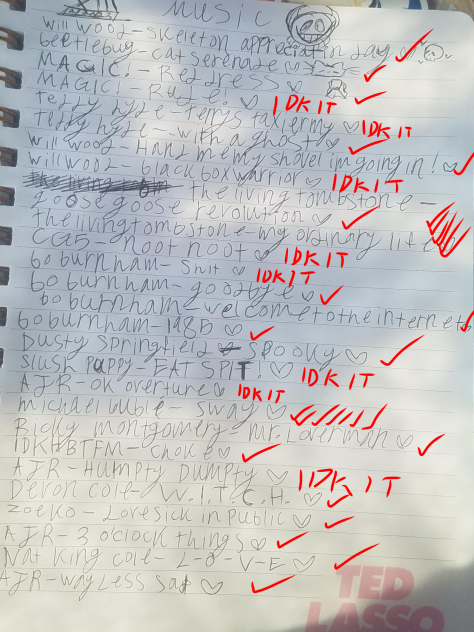 MUSIC
will wood - skeleton appreciation day
beetlebug - cat serenade
MAGIC! - Red dress
MAGIC! - Rude!
IDK IT
Teddy hyde - Terrys taxiermy
IDK IT
Teddy hyde - with a ghost
will wood - Hand me my shovel im going in!
will wood - black box warrior
IDK IT
the living tombstone -
goose goose revolution
the living tombstone - my ordinary life
CG5 - noot noot
IDK IT
bo burnham - shit
IDK IT
bo burnham - goodbye
bo burnham - welcome to the internet
bo burnham - 1985
Dusty Springfield - spooky
Slush Puppy - EAT SPIT!
IDK IT
AJR - ok overture
IDK IT
michael buble - sway
Ricky montgomery - mr. Loverman
IDKHBTFM - Choke
AJR - Humpty Dumpty
IDK IT
Deron cole - W.I.T.C.H.
zoeko - Lovesick in Public
AJR - 3 o'clock things
Nat King cole - L-O-V-E
AJR - way Less sad
TED
LASSO